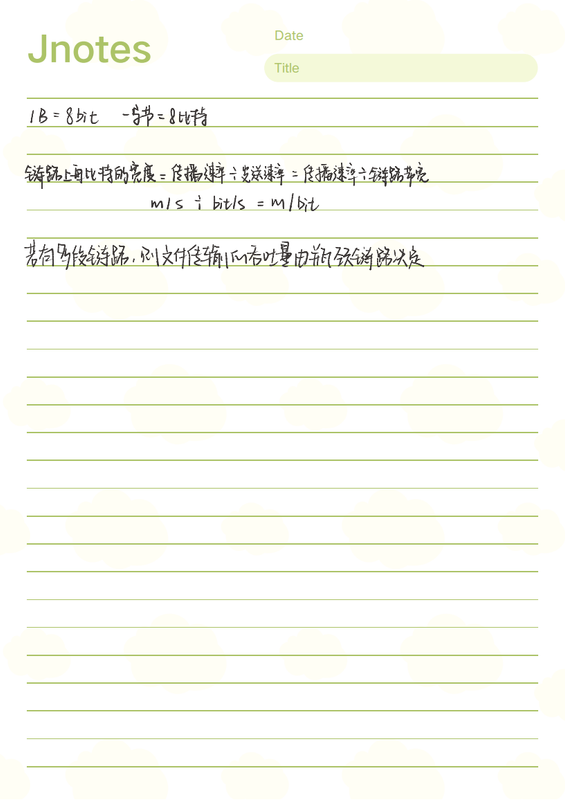 Jnotes
Date
Title
1B = 8bit 一字节 = 8比特
链路上每比特的宽度 = 传播速率 ÷ 发送速率 = 传播速率 ÷ 链路带宽
m/s ÷ bit/s = m/bit
若有多段链路，则文件传输的吞吐量由瓶颈链路决定